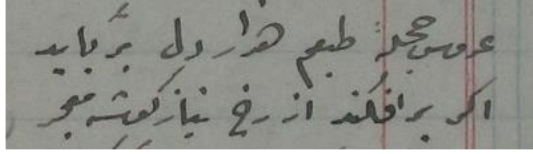 عروس حجلهٔ طبعم هزار دل برباید
اگر برافکند از رخ نیاز گوشه معجر